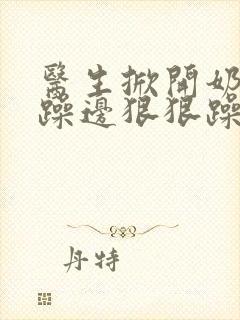 醫生掀開奶
躁邊狠狠躁
丹特